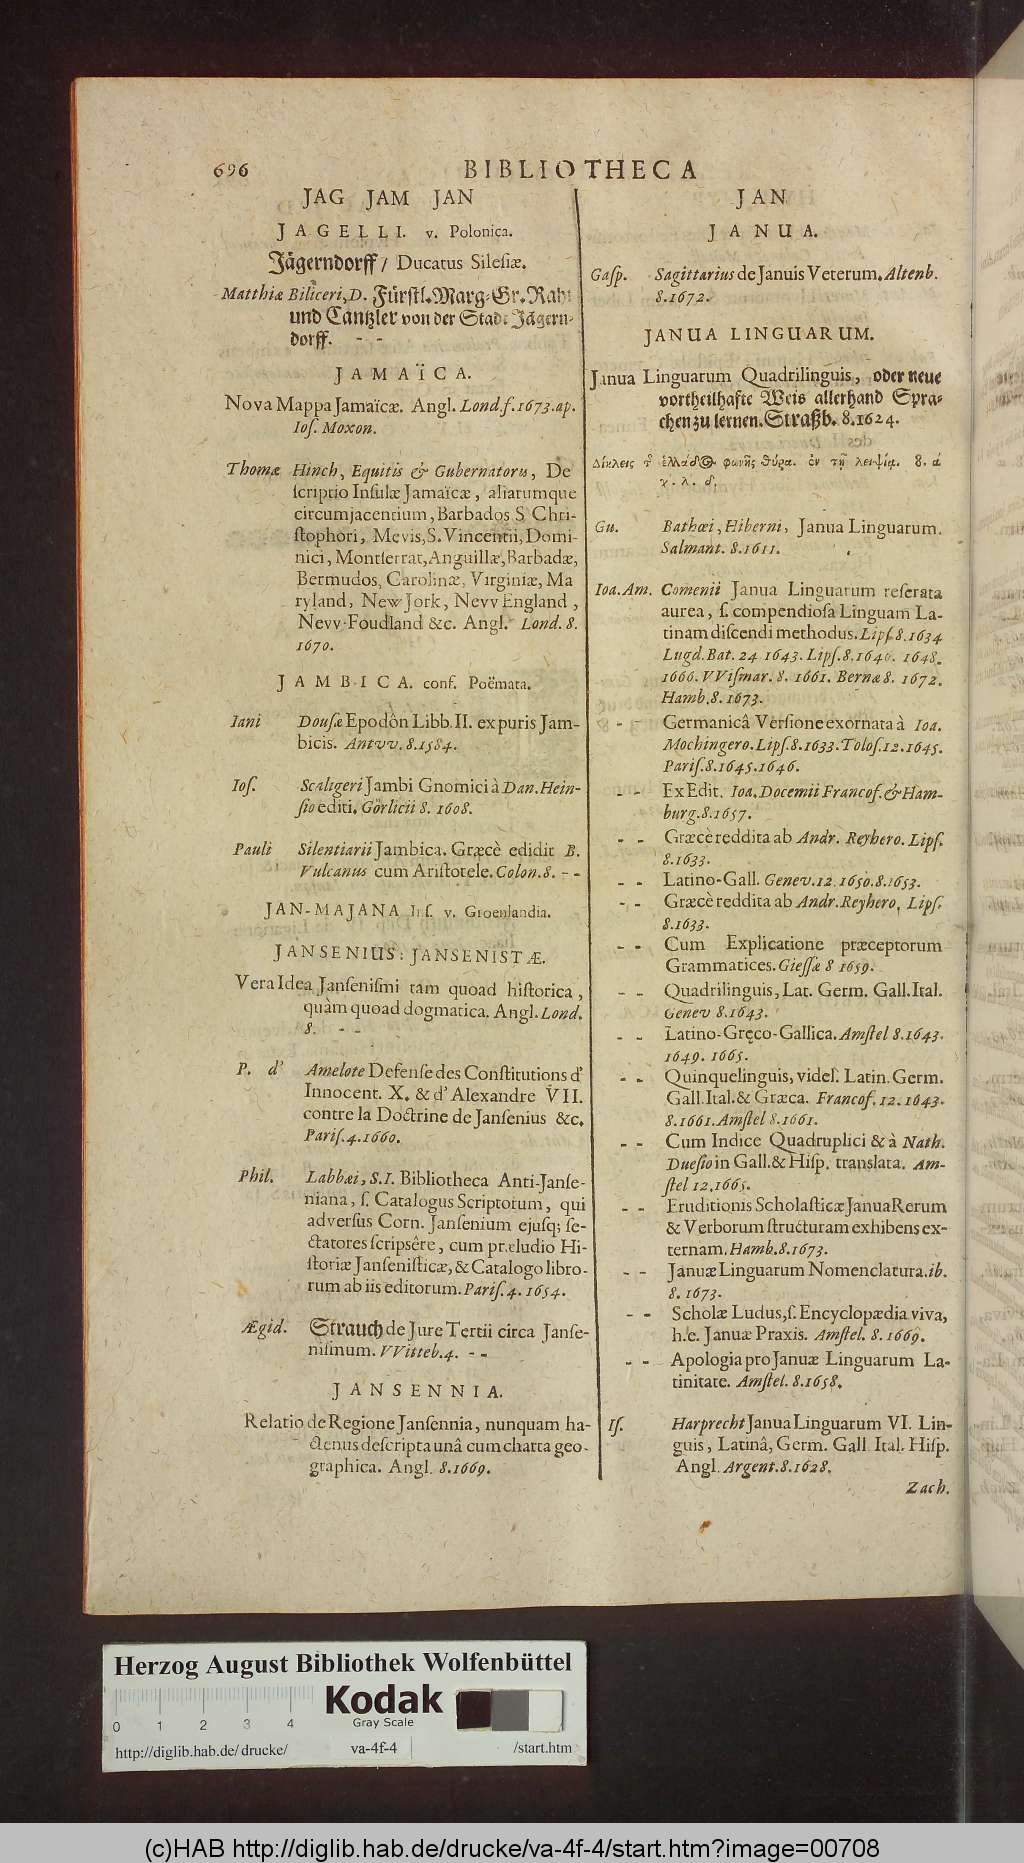 696 BIBLIOTHECA
JAG JAM JAN
JAGELLI. v. Polonica.
Jägerndorff / Ducatus Sileſiæ.
Matthiæ Biliceri, D. Fürſtl. Marg-Gr. Raht
und Cantzler von der Stadt Jägern-
dorff. - -
JAMAÏCA.
Nova Mappa Jamaïcæ. Angl. Lond. f. 1673. ap.
Ioſ. Moxon.
Thomæ Hinch, Equitis & Gubernatoris, De
ſcriptio Inſulæ Jamaïcæ, aliarumque
circumjacentium, Barbados S Chri-
ſtophori, Mevis, S. Vincentii, Domi-
nici, Montſerrat, Anguillæ, Barbadæ,
Bermudos, Carolinæ, Virginiæ, Ma
ryland, New Jork, Nevv England,
Nevv-Foudland &c. Angl. Lond. 8.
1670.
JAMBICA. conf. Poëmata.
Iani Douſæ Epodôn Libb. II. ex puris Jam-
bicis. Antvv. 8. 1584.
Ioſ. Scaligeri Jambi Gnomici à Dan. Hein-
ſio editi. Görlicii 8. 1608.
Pauli Silentiarii Jambica. Græcè edidit B.
Vulcanus cum Ariſtotele. Colon. 8. - -
JAN-MAJANA Inſ. v. Groenlandia.
JANSENIUS: JANSENISTÆ.
Vera Idea Janſeniſmi tam quoad hiſtorica,
quàm quoad dogmatica. Angl. Lond.
8. - -
P. d' Amelote Defenſe des Conſtitutions d'
Innocent. X. & d' Alexandre VII.
contre la Doctrine de Janſenius &c.
Pariſ. 4. 1660.
Phil. Labbæi, S. I. Bibliotheca Anti-Janſe-
niana, ſ. Catalogus Scriptorum, qui
adverſus Corn. Janſenium ejuſq; ſe-
ctatores ſcripsêre, cum præludio Hi-
ſtoriæ Janſeniſticæ, & Catalogo libro-
rum ab iis editorum. Pariſ. 4. 1654.
Ægid. Strauch de Jure Tertii circa Janſe-
niſinum. VVitteb. 4. - -
JANSENNIA.
Relatio de Regione Janſennia, nunquam ha-
ctenus deſcripta unâ cum charta geo-
graphica. Angl. 8. 1669.
JAN
JANUA.
Gaſp. Sagittarius de Januis Veterum. Altenb.
8. 1672.
JANUA LINGUARUM.
Janua Linguarum Quadrilinguis, oder neue
vortheilhafte Weis allerhand Spra-
chen zu lernen. Straßb. 8. 1624.
φωνῆς θύρα. ἐν τῇ 8.
Gu. Bathœi, Hiberni, Janua Linguarum.
Salmant. 8. 1611.
Ioa. Am. Comenii Janua Linguarum reſerata
aurea, ſ. compendioſa Linguam La-
tinam diſcendi methodus. Lipſ. 8. 1634
Lugd. Bat. 24 1643. Lipſ. 8. 1640. 1648.
1666. VViſmar. 8. 1661. Bernæ 8. 1672.
Hamb. 8. 1673.
- - Germanicâ Verſione exornata à Ioa.
Mochingero. Lipſ. 8. 1633. Toloſ. 12. 1645.
Pariſ. 8. 1645. 1646.
- - Ex Edit. Ioa. Docemii Francof. & Ham-
burg. 8. 1657.
- - Græcè reddita ab Andr. Reyhero. Lipſ.
8. 1633.
- - Latino-Gall. Genev. 12. 1650. 8. 1653.
- - Græcè reddita ab Andr. Reyhero, Lipſ.
8. 1633.
- - Cum Explicatione præceptorum
Grammatices. Gieſſæ 8 1659.
- - Quadrilinguis, Lat. Germ. Gall. Ital.
Genev 8. 1643.
- - Latino-Gręco-Gallica. Amſtel 8. 1643.
1649. 1665.
- - Quinquelinguis, videſ. Latin. Germ.
Gall. Ital. & Græca. Francof. 12. 1643.
8. 1661. Amſtel 8. 1661.
- - Cum Indice Quadruplici & à Nath.
Dueſio in Gall. & Hiſp. translata. Am-
ſtel 12. 1665.
- - Eruditionis Scholaſticæ Janua Rerum
& Verborum ſtructuram exhibens ex-
ternam. Hamb. 8. 1673.
- - Januæ Linguarum Nomenclatura. ib.
8. 1673.
- - Scholæ Ludus, ſ. Encyclopædia viva,
h. e. Januæ Praxis. Amſtel. 8. 1669.
- - Apologia pro Januæ Linguarum La-
tinitate. Amſtel. 8. 1658.
Iſ. Harprecht Janua Linguarum VI. Lin-
guis, Latinâ, Germ. Gall. Ital. Hiſp.
Angl. Argent. 8. 1628.
Zach.
Herzog August Bibliothek Wolfenbüttel
Kodak
Gray Scale
0 1 2 3 4
http://diglib.hab.de/drucke/ va-4f-4 /start.htm
(c)HAB http://diglib.hab.de/drucke/va-4f-4/start.htm?image=00708